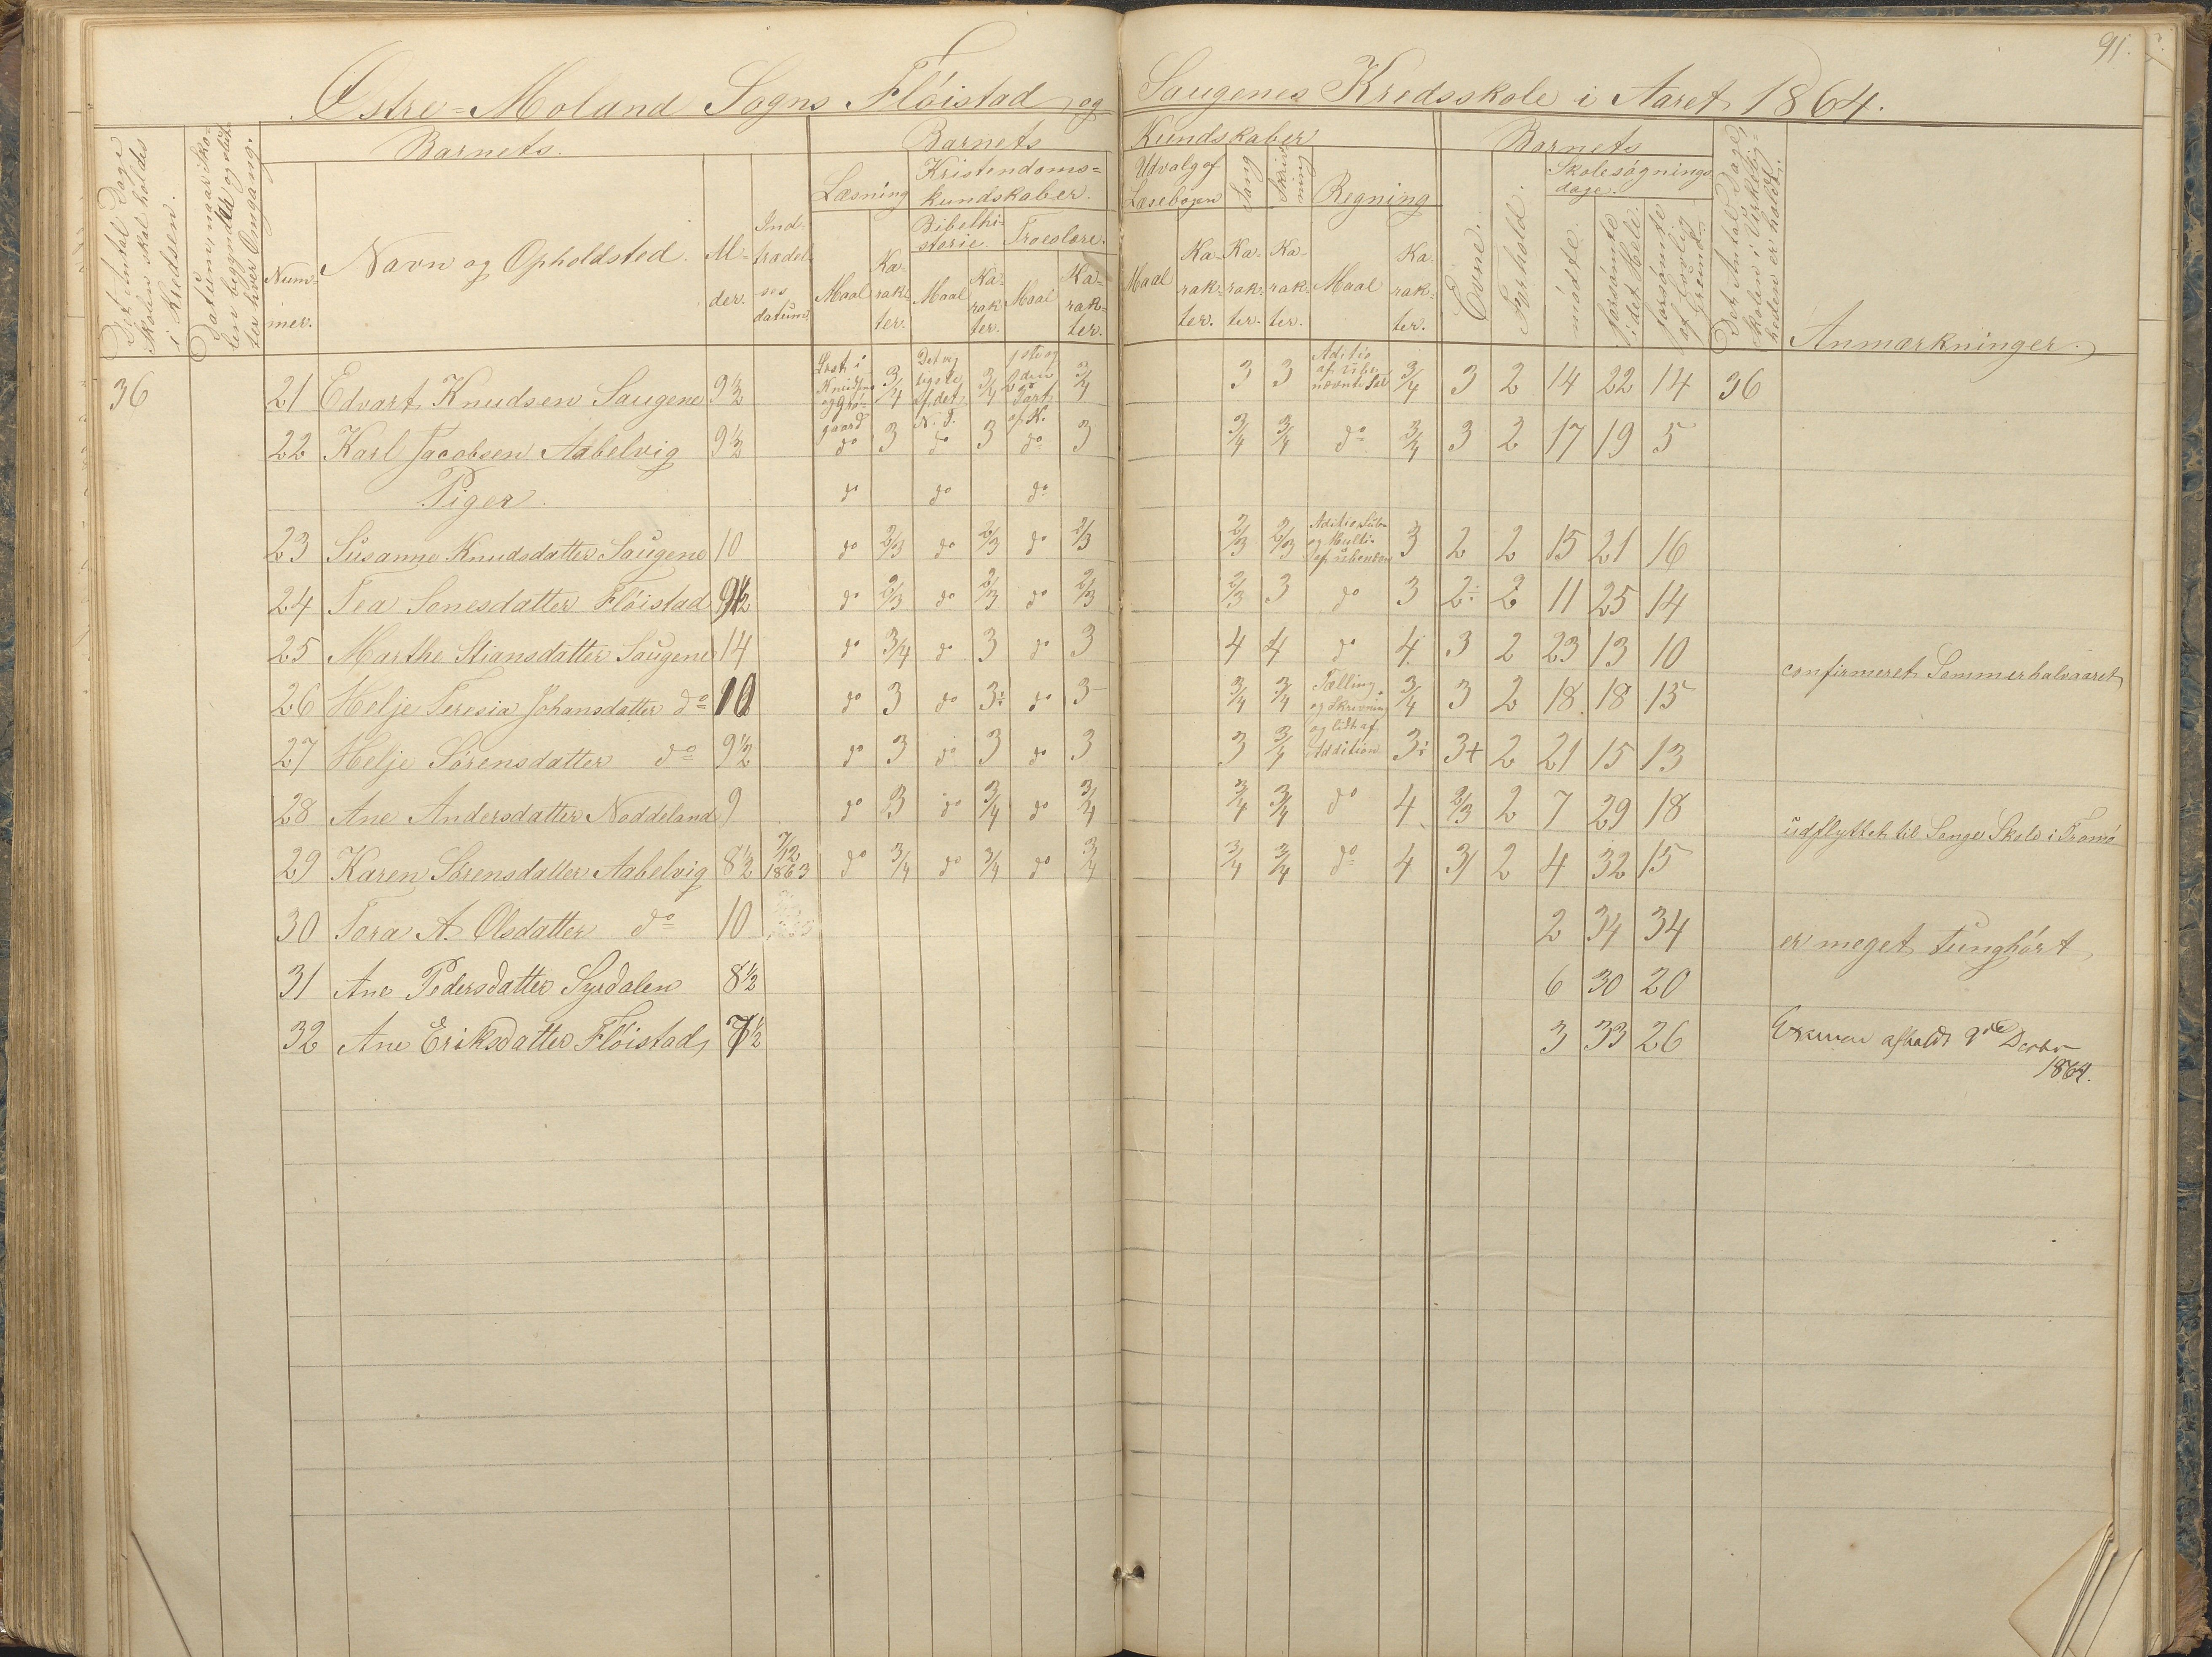 91.
Østre=Moland Sogns Flöistad og Saugenes Kredsskole i Aaret 1864.
Det Antal Dage Skolen skal holdes i Kredsen.
Datum, naar Skolen begynder og slutter hver Omgang.
Barnets.
Nummer.
Navn og Opholdsted.
Alder.
Indtrædelsesdatum.
Barnets Kundskaber
Læsning
Maal
Karakter.
Kristendomskundskaber.
Bibelhistorie.
Maal
Karakter.
Troeslære.
Maal
Karakter.
Udvalg af Læsebogen
Maal
Karakter.
Sang
Karakter.
Skrivning
Karakter.
Regning
Maal
Karakter.
Barnets
Evne.
Forhold.
Skolesøgningsdage.
mødte.
forsömte i det Hele.
forsömte af lovlig Grund.
Det Antal Dage, Skolen i Virkeligheden er holdt.
Anmærkninger.
36 21 Edvart Knudsen Saugene 9½ Læst i og Grøgaard 3/4 Det vigtigste af det N. T. 3/4 1ste og 2den Part af K. 3/4 3 3 Aditio af ubenævnte Tal 3/4 3 2 14 22 14 36
22 Karl Jacobsen Aabelvig 9½ do 3 do 3 do 3 3/4 3/4 do 3/4 3 2 17 19 5
Piger. do do do
23 Susanne Knudsdatter Saugene 10 do 2/3 do 2/3 do 2/3 2/3 2/3 Aditio Sub- og Multi- af ubenævn 3 2 2 15 21 16
24 Tea Tonesdatter Flöistad 9½ do 2/3 do 2/3 do 2/3 2/3 3 do 3 2÷ 2 11 25 14
25 Marthe Stiansdatter Saugene 14 do 3/4 do 3 do 3 4 4 do 4 3 2 23 13 10 confirmeret Sommerhalvaaret
26 Helje Teresia Johansdatter do 10 do 3 do 3÷ do 3 3/4 3/4 Tælling og Skrivning 3/4 3 2 18 18 13
27 Helje Sørensdatter do 9½ do 3 do 3 do 3 3 3/4 og lidt af Addition 3÷ 3+ 2 21 15 13
28 Ane Andersdatter Noddeland 9 do 3 do 3/4 do 3/4 3/4 3/4 do 4 2/3 2 7 29 18 udflyttet til Songe Skole i Tromø
29 Karen Sørensdatter Aabelvig 8½ 7/12 1863 do 3/4 do 3/4 do 3/4 3/4 3/4 do 4 3/ 2 4 32 15
30 Tora A. Olsdatter do 10 2 34 34 er meget tunghört
31 Ane Pedersdatter Syrdalen 8½ 6 30 20
32 Ane Eriksdatter Flöistad 7½ 3 33 26 Examen afholdt 9de Decbr 1864.